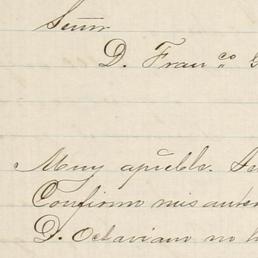 Señor
D. Fran^co
Muy apble.
Confirmo mis anter
D. Octaviano no h